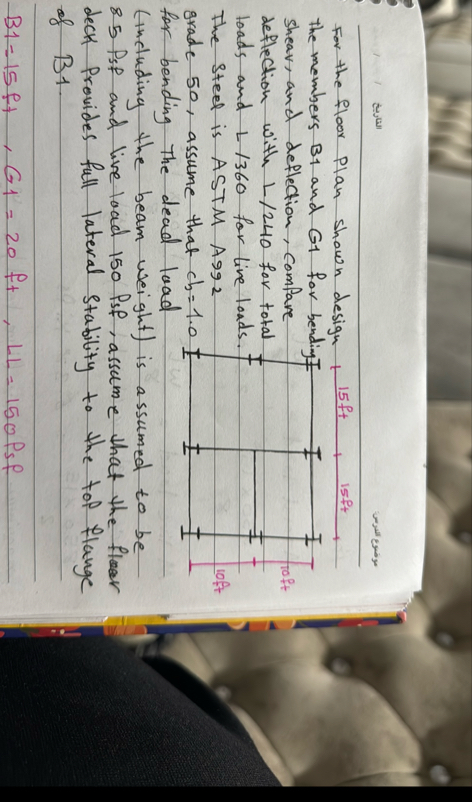 التاريخ
موضوع الدرس
For the floor Plan shown design
the members B1 and G1 for bending,
shear, and deflection, compare
deflection with L/240 for total
loads and L/360 for live loads.
The steel is ASTM A992
grade 50, assume that cb=1.0
for bending The dead load
(including the beam weight) is assumed to be
85 Psf and live load 150 Psf, assume that the floor
deck Provides full lateral stability to the top flange
of B1
15ft
15ft
10ft
10ft
B1=15ft , G1=20ft , LL=150Psf